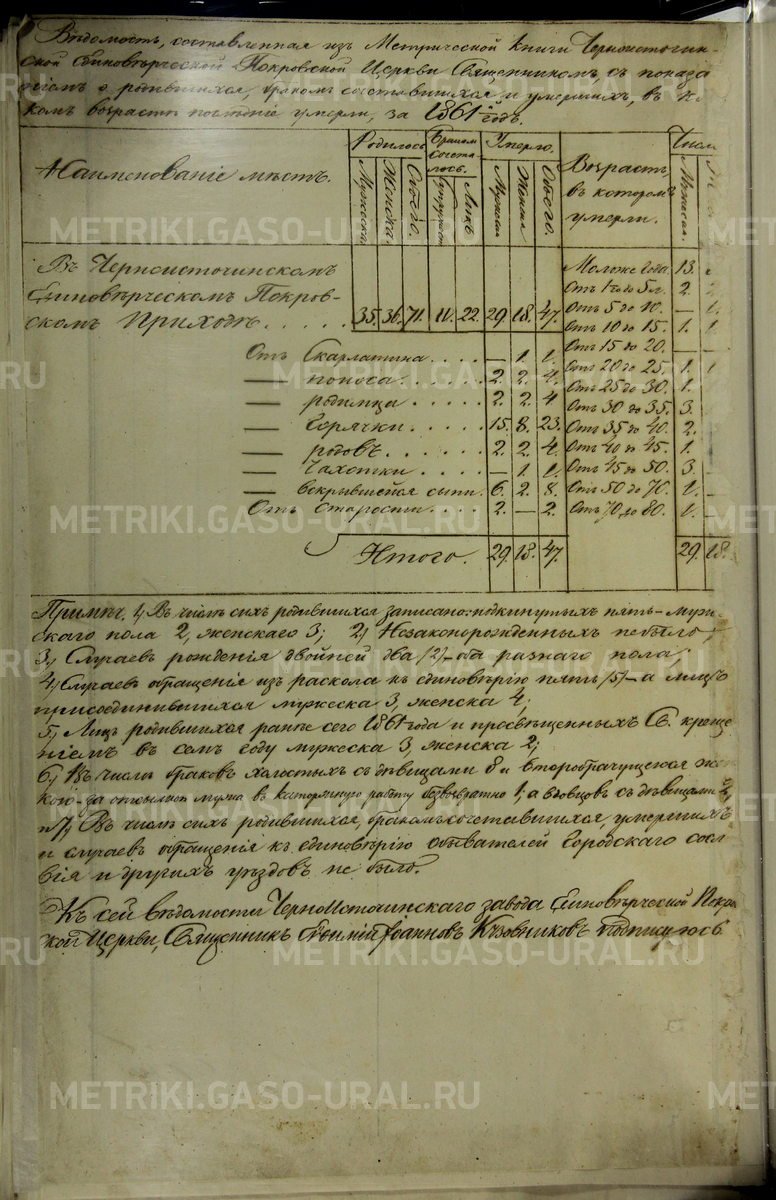 Вѣдомость, составленная изъ Метрической Книги Черноисточин-
ской Единовѣрческой Покровской Церкви Священникомъ, съ показа
ніемъ о родившихся, бракомъ сочетавшихся и умершихъ, въ ка
комъ возрастѣ послѣдніе умерли, за 1861й годъ.
Наименованіе мѣстъ.
Родилось
Мужеска.
Женска.
Обоего.
Бракомъ сочета-
лось.
Супружествъ
Лицъ
Умерло.
Мужска
Женска
Обоего.
Возрастъ,
въ которомъ
умерли.
Числ
Мужеска.
Въ Черноисточинскомъ
Единовѣрческомъ Покров-
скомъ Приходѣ . . . . . 35. 36. 71. 11. 22. 29. 18. 47.
Отъ Скарлатина . . . . — 1. 1.
— поноса . . . . . 2. 2. 4.
— родимца . . . . . 2. 2. 4
— Горячки . . . . . 15. 8. 23.
— родовъ . . . . . 2. 2. 4.
— Чахотки . . . . — 1. 1.
— вскрывшейся сыпи. 6. 2. 8.
Отъ Старости . . . . 2. — 2.
Итого. 29. 18. 47.
Моложе Года. 13.
Отъ 1 го до 5 л. 2.
Отъ 5 до 10. — 1.
Отъ 10 до 15. 1. 1
Отъ 15 до 20. — —
Отъ 20 до 25. 1. 1
Отъ 25 до 30. 1.
Отъ 30 до 35. 3.
Отъ 35 до 40. 2.
Отъ 40 до 45. 1.
Отъ 45 до 50. 3. —
Отъ 50 до 70. 1. —
Отъ 70 до 80. 1. —
29. 18.
Примѣч. 1, Въ числѣ сихъ родившихся записано: подкинутыхъ пять – муже-
скаго пола 2, женскаго 3; 2, Незаконорожденныхъ небыло;
3, Случаевъ рожденія двойней два /2/ – оба разнаго пола;
4, Случаевъ обращенія изъ раскола къ единовѣрію пять /5/ – а лицъ
присоединившихся мужеска 3, женска 4;
5, Лицъ родившихся ранѣе сего 1861 года и просвѣщенныхъ Св. креще
ніемъ въ семъ году мужеска 3, женска 2;
6, Въ числѣ браковъ холостыхъ съ дѣвицами 8 и второбрачущейся
за отсылкой мужа въ каторжную работу безвозвратно 1, а вдовцовъ съ дѣвицами 2,
и 7, Въ числѣ сихъ родившихся, бракомъ сочетавшихся, умершихъ
и случаевъ обращенія къ единовѣрію обывателей Городского сосл
вія и другихъ уѣздовъ не было.
Къ сей вѣдомости Черноисточинскаго завода Единовѣрческой Покров
ской Церкви, Священникъ Іоанновъ Кузовниковъ подписуюсь
METRIKI.GASO-URAL.RU